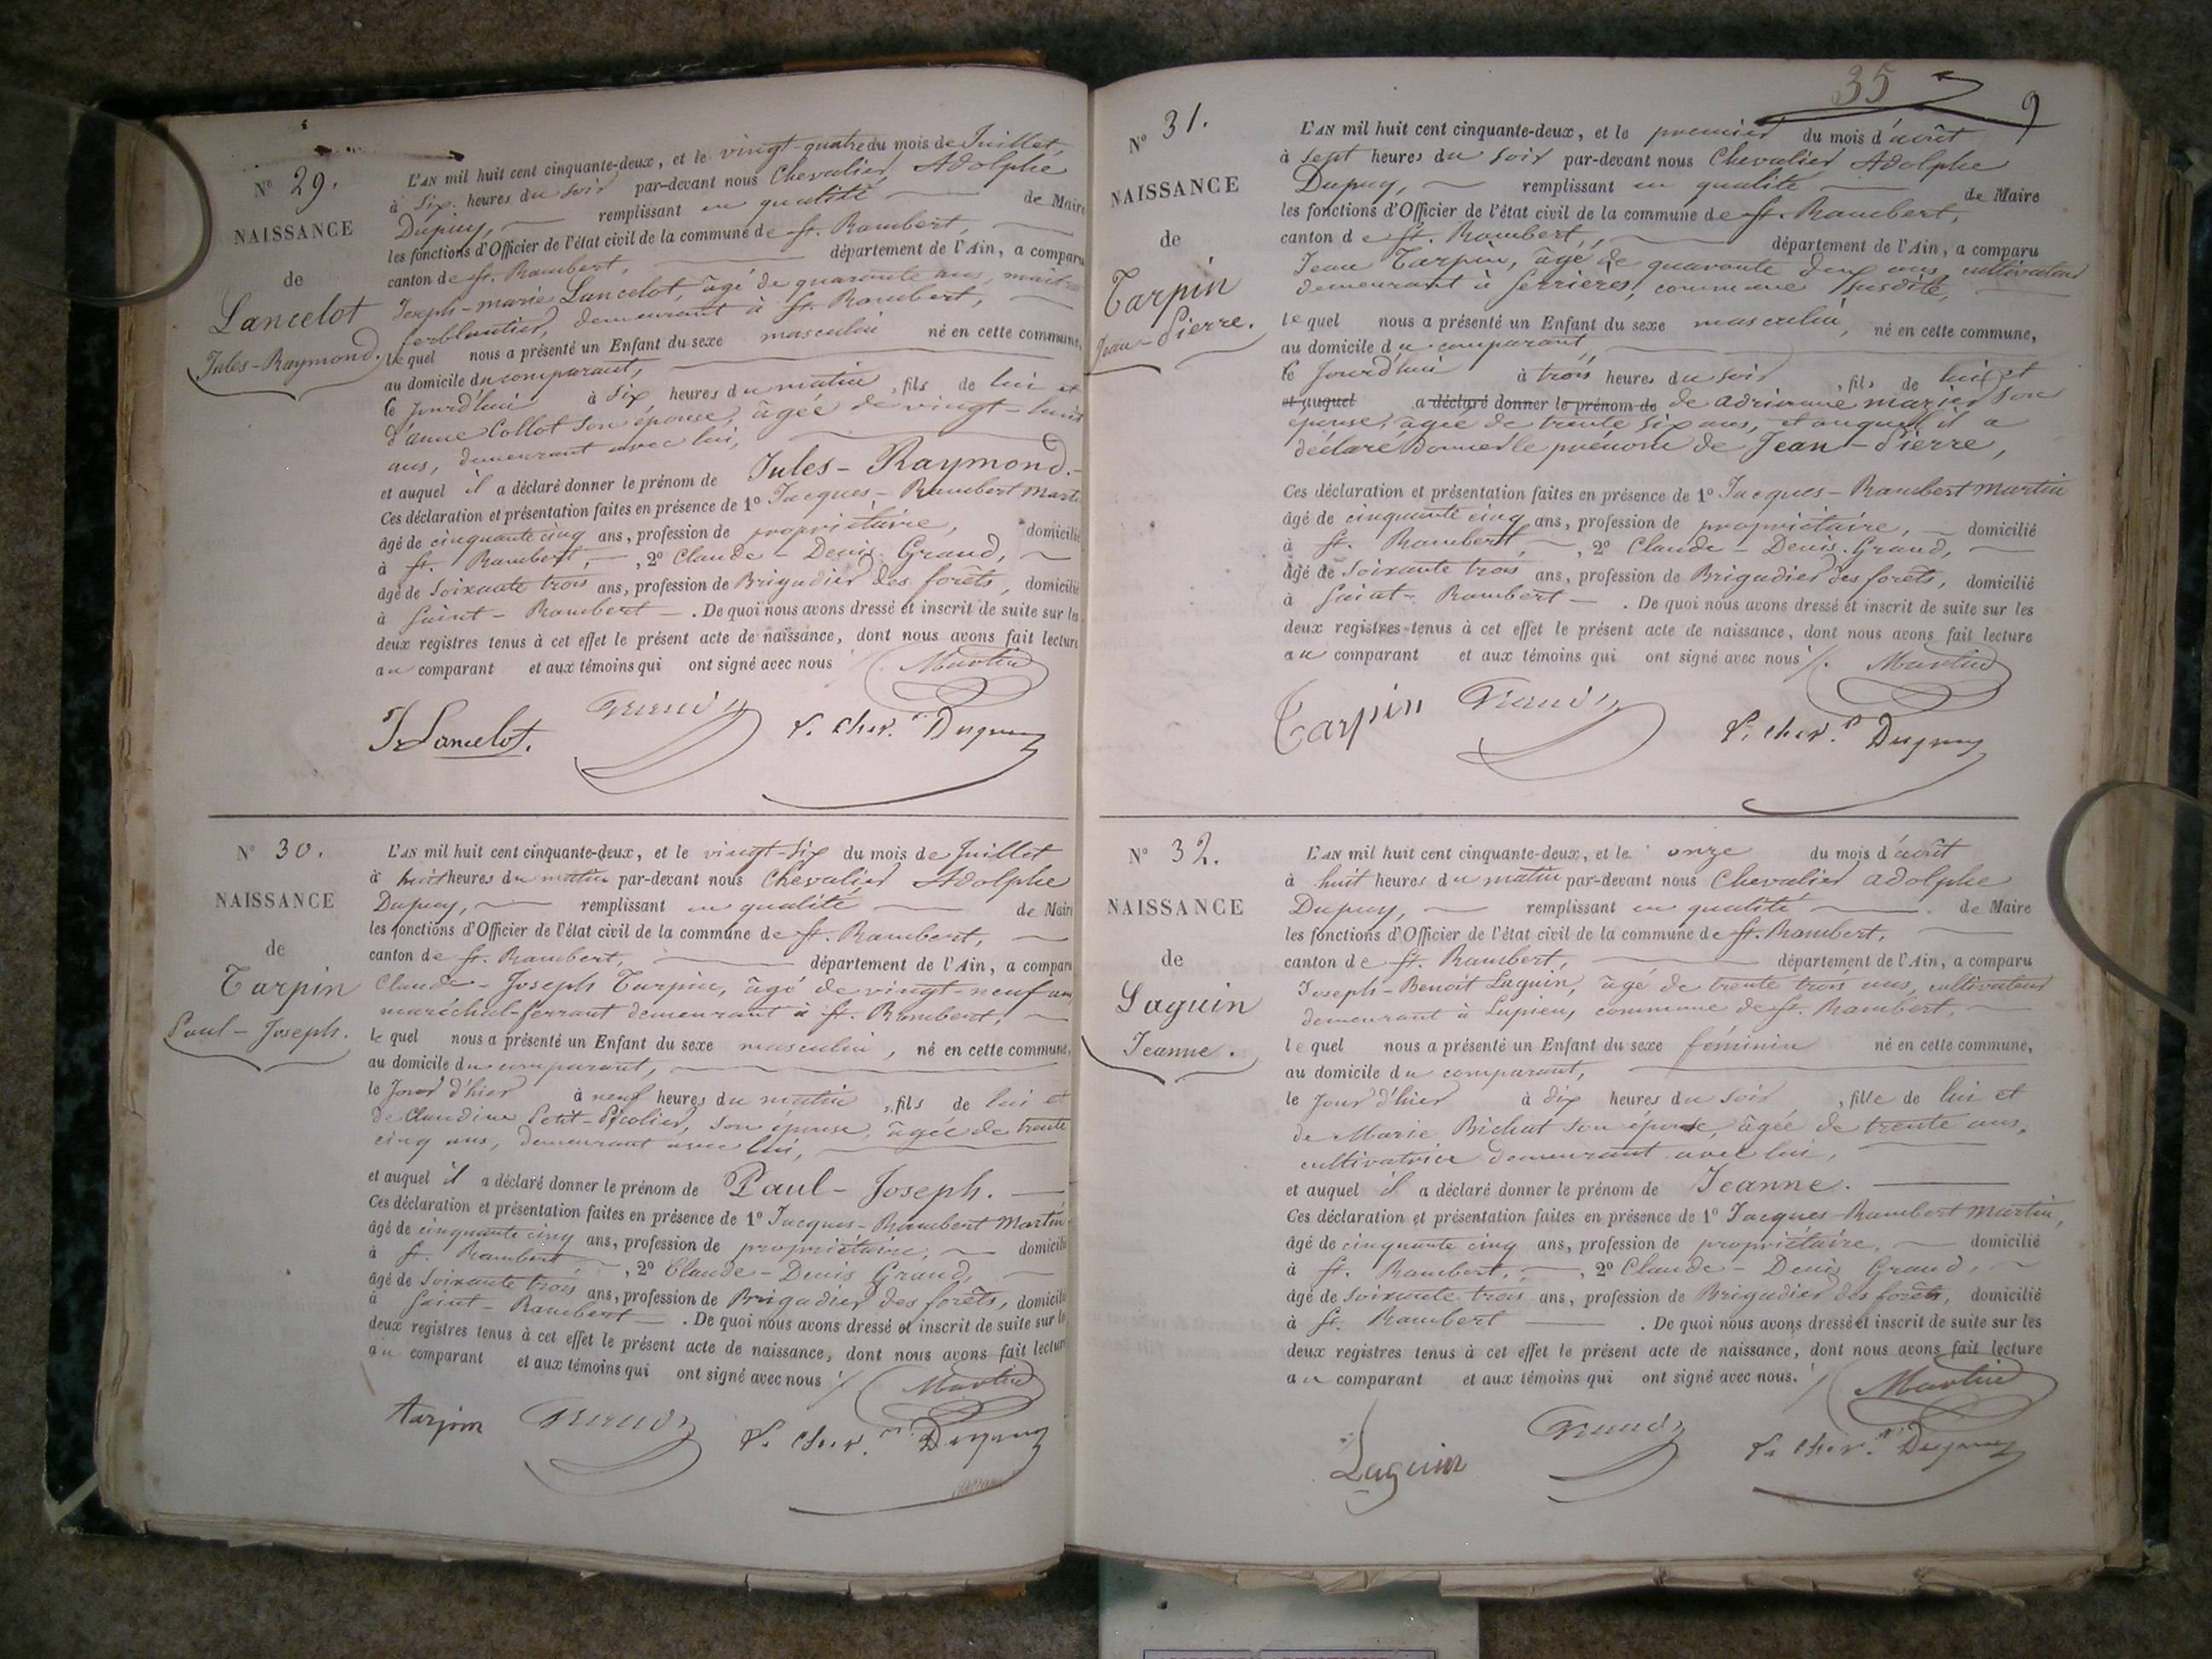 Nº 29.
NAISSANCE
de
Lancelot
Jules-Raymond.
L'AN mil huit cent cinquante-deux, et le vingt-quatre du mois de Juillet,
à six heures du soir par-devant nous Chevalier Adolphe
Dupuy, remplissant en qualité de Maire
les fonctions d'Officier de l'état civil de la commune de St. Rambert,
canton de St. Rambert, département de l'Ain, a comparu
Joseph-marie Lancelot, âgé de quarante ans, maitre
ferblantier, demeurant à St. Rambert,
lequel nous a présenté un Enfant du sexe masculin né en cette commune,
au domicile du comparant,
le jourd'hui à six heures du matin, fils de lui et
d'anne Collot son épouse, âgée de vingt-huit
ans, demeurant avec lui,
et auquel il a déclaré donner le prénom de Jules-Raymond.
Ces déclaration et présentation faites en présence de 1º Jacques-Rambert Martin
âgé de cinquante cinq ans, profession de propriétaire, domicilié
à St. Rambert, 2º Claude-Denis Grand,
âgé de soixante trois ans, profession de Brigadier des forêts, domicilié
à Saint-Rambert. De quoi nous avons dressé et inscrit de suite sur les
deux registres tenus à cet effet le présent acte de naissance, dont nous avons fait lecture
au comparant et aux témoins qui ont signé avec nous Martin
J. Lancelot. Grand Cher. Dupuy
Nº 30.
NAISSANCE
de
Tarpin
Paul-Joseph.
L'AN mil huit cent cinquante-deux, et le vingt-six du mois de Juillet
à huit heures du matin par-devant nous Chevalier Adolphe
Dupuy, remplissant en qualité de Maire
les fonctions d'Officier de l'état civil de la commune de St. Rambert,
canton de St. Rambert, département de l'Ain, a comparu
Claude-Joseph Tarpin, âgé de vingt-neuf ans
maréchal-ferrant demeurant à St. Rambert,
lequel nous a présenté un Enfant du sexe masculin, né en cette commune,
au domicile du comparant,
le Jour d'hier à neuf heures du matin, fils de lui et
de Claudine Petit-, son épouse, âgée de trente
cinq ans, demeurant avec lui,
et auquel il a déclaré donner le prénom de Paul-Joseph.
Ces déclaration et présentation faites en présence de 1º Jacques-Rambert Martin
âgé de cinquante cinq ans, profession de propriétaire, domicilié
à St. Rambert, 2º Claude-Denis Grand,
âgé de Soixante trois ans, profession de Brigadier des forêts, domicilié
à Saint-Rambert. De quoi nous avons dressé et inscrit de suite sur les
deux registres tenus à cet effet le présent acte de naissance, dont nous avons fait lecture
au comparant et aux témoins qui ont signé avec nous Martin
tarpin Grand Cher. Dupuy
35
9
Nº 31.
NAISSANCE
de
Tarpin
Jean-Pierre.
L'AN mil huit cent cinquante-deux, et le premier du mois d'août
à sept heures du soir par-devant nous Chevalier Adolphe
Dupuy, remplissant en qualité de Maire
les fonctions d'Officier de l'état civil de la commune de St. Rambert,
canton de St. Rambert, département de l'Ain, a comparu
Jean Tarpin, âgé de quarante deux ans, cultivateur
demeurant à Serrières, commune susdite,
lequel nous a présenté un Enfant du sexe masculin, né en cette commune,
au domicile du comparant,
le jourd'hui à trois heures du soir, fils de lui et
et auquel a déclaré donner le prénom de de adrienne mazier son
épouse, âgée de trente six ans, et auquel il a
déclaré donner le prénom de Jean-Pierre,
Ces déclaration et présentation faites en présence de 1º Jacques-Rambert Martin
âgé de cinquante cinq ans, profession de propriétaire, domicilié
à St. Rambert, 2º Claude-Denis Grand,
âgé de Soixante trois ans, profession de Brigadier des forêts, domicilié
à Saint-Rambert. De quoi nous avons dressé et inscrit de suite sur les
deux registres tenus à cet effet le présent acte de naissance, dont nous avons fait lecture
au comparant et aux témoins qui ont signé avec nous Martin
Tarpin Grand Cher. Dupuy
Nº 32.
NAISSANCE
de
Laguin
Jeanne.
L'AN mil huit cent cinquante-deux, et le onze du mois d'août
à huit heures du matin par-devant nous Chevalier adolphe
Dupuy, remplissant en qualité de Maire
les fonctions d'Officier de l'état civil de la commune de St. Rambert,
canton de St. Rambert, département de l'Ain, a comparu
Joseph-Benoit Laguin, âgé de trente trois ans, cultivateur
demeurant à Lupieu, commune de St. Rambert,
lequel nous a présenté un Enfant du sexe féminin né en cette commune,
au domicile du comparant,
le Jour d'hier à dix heures du soir, fille de lui et
de Marie Bichat son épouse, âgée de trente ans,
cultivatrice demeurant avec lui,
et auquel il a déclaré donner le prénom de Jeanne.
Ces déclaration et présentation faites en présence de 1º Jacques-Rambert Martin,
âgé de cinquante cinq ans, profession de propriétaire, domicilié
à St. Rambert, 2º Claude-Denis Grand,
âgé de soixante trois ans, profession de Brigadier des forêts, domicilié
à St. Rambert. De quoi nous avons dressé et inscrit de suite sur les
deux registres tenus à cet effet le présent acte de naissance, dont nous avons fait lecture
au comparant et aux témoins qui ont signé avec nous. Martin
Laguin Grand Cher. Dupuy